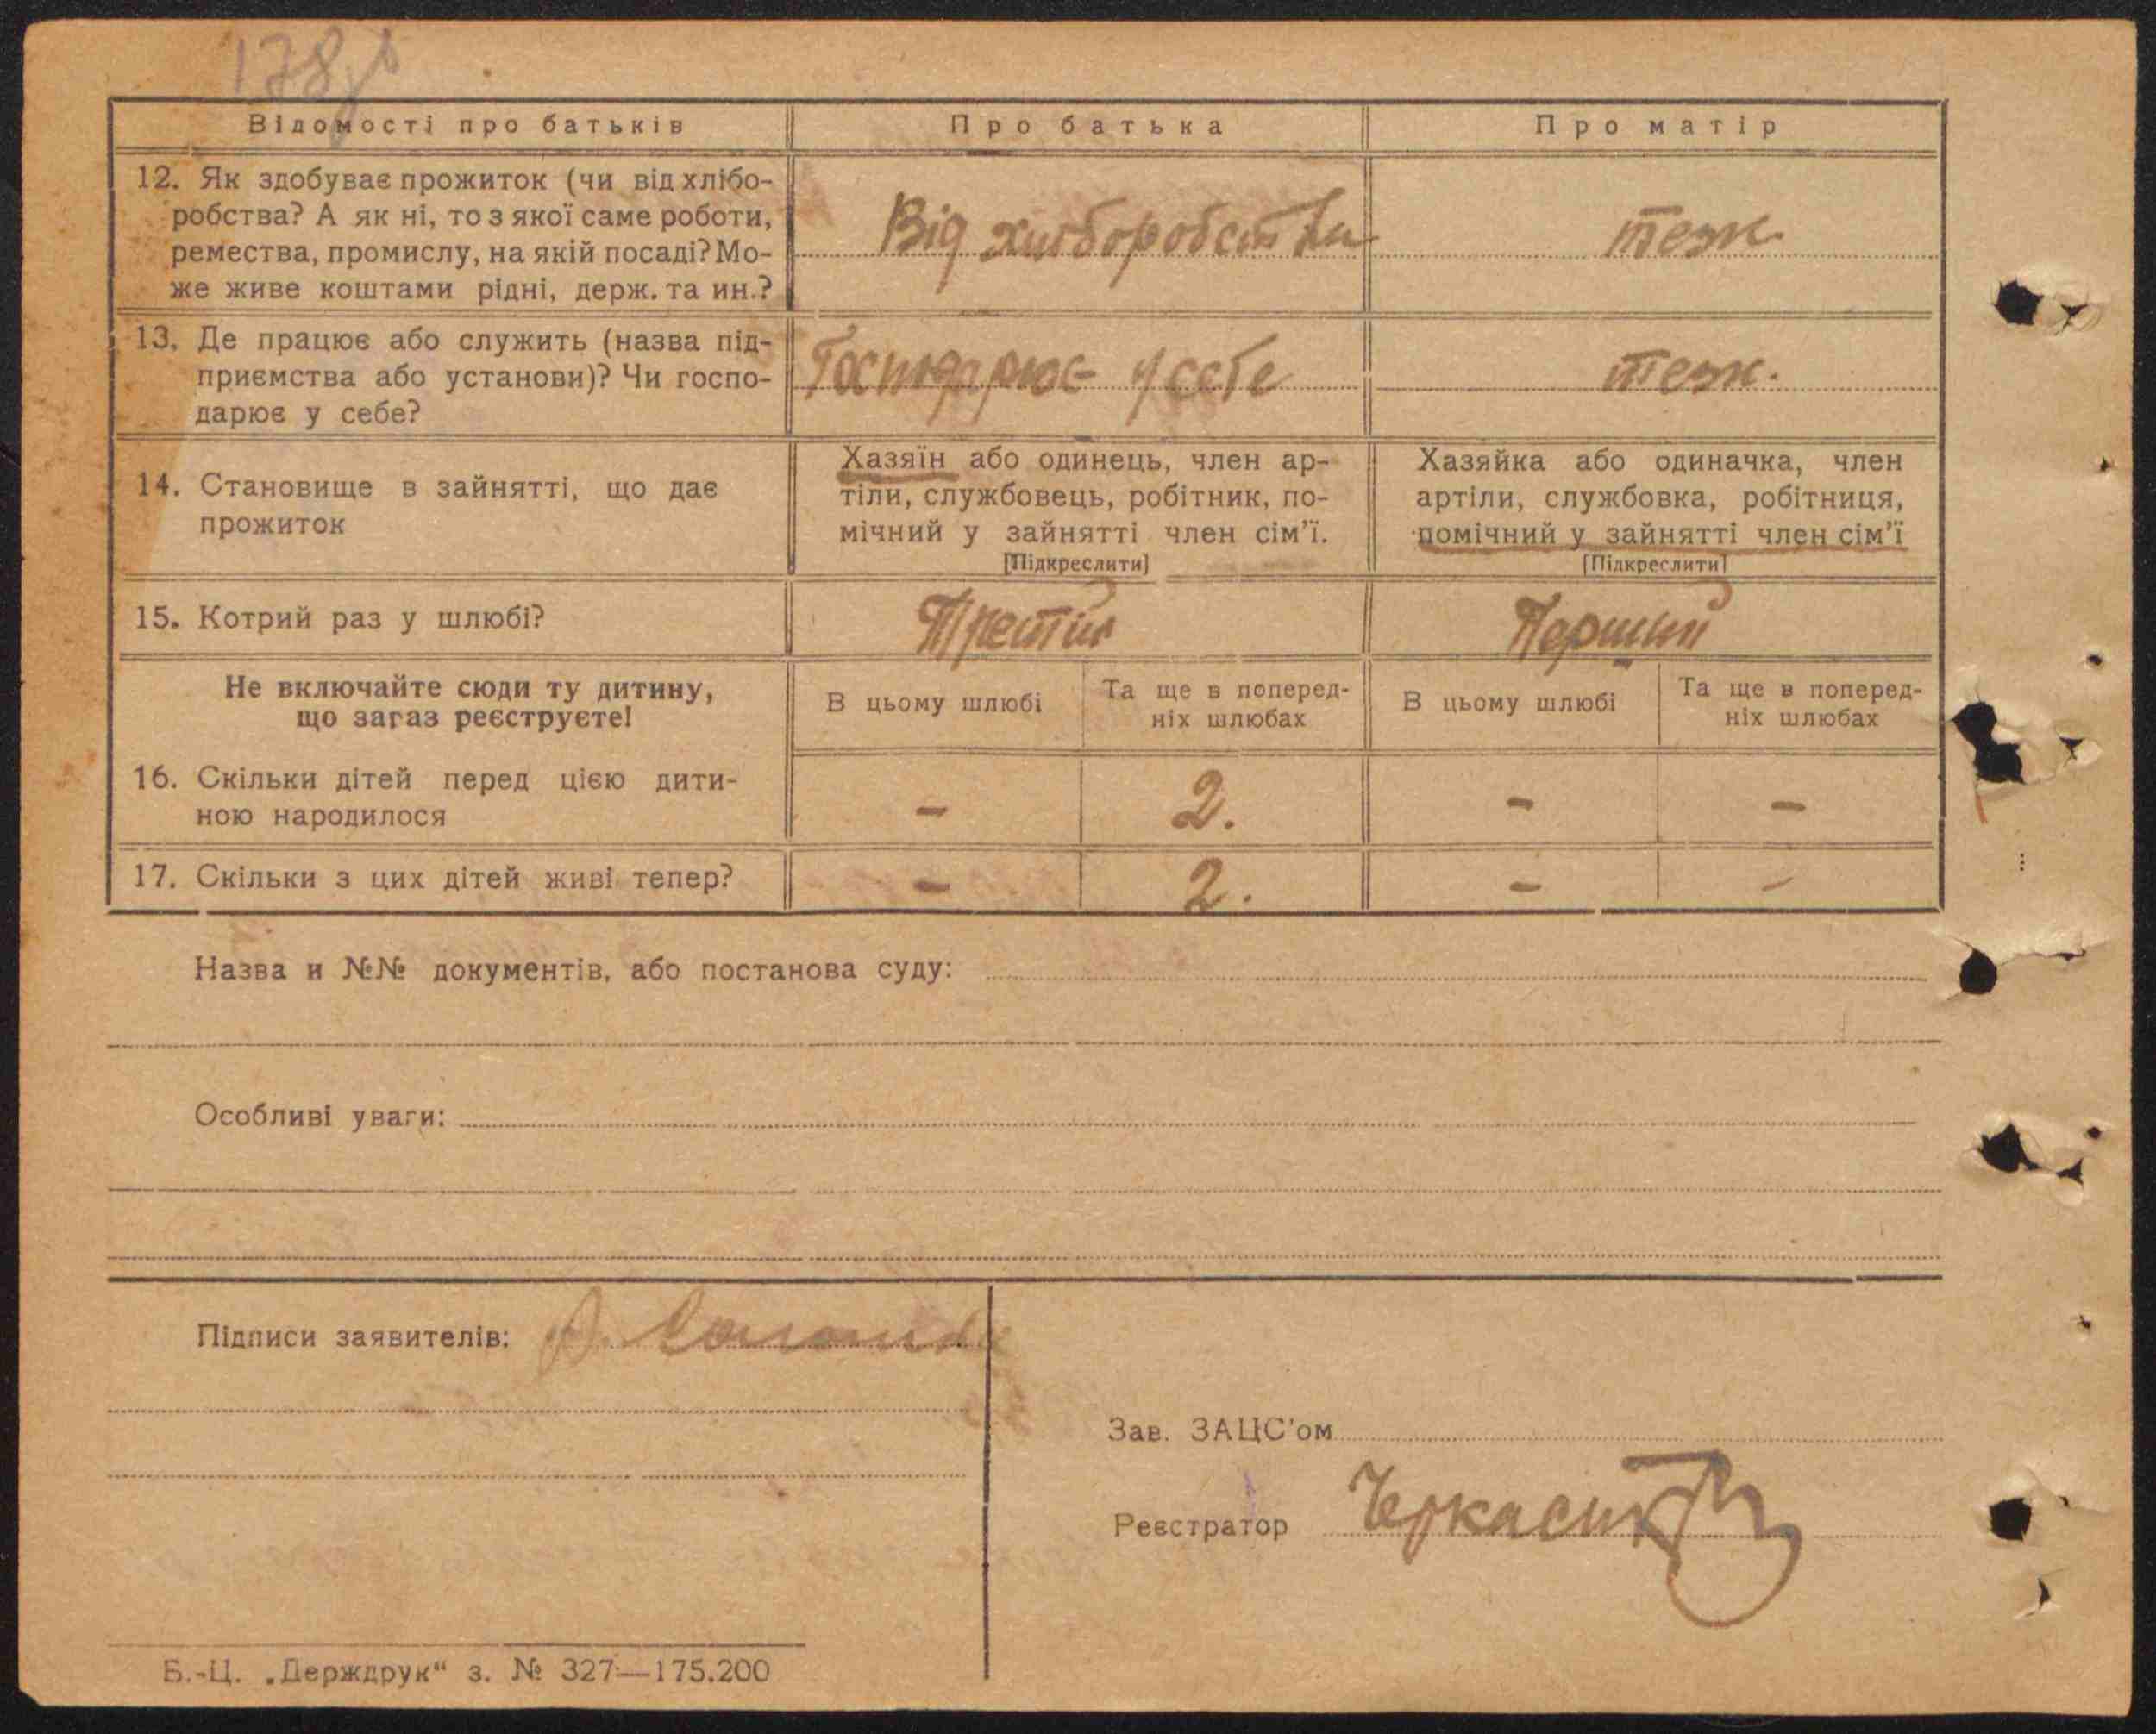 178
Відомості про батьків
Про батька
Про матір
12. Як здобуває прожиток (чи від хлібо-
робства? А як ні, то з якої саме роботи,
ремества, промислу, на якій посаді? Мо-
же живе коштами рідні, держ. та ин.?
Від хліборобства
теж
13. Де працює або служить (назва під-
приємства або установи)? Чи госпо-
дарює у себе?
Господарює у себе
теж.
14. Становище в зайнятті, що дає
прожиток
Хазяїн або одинець, член ар-
тіли, службовець, робітник, по-
мічний у зайнятті член сім'ї.
[Підкреслити]
Хазяйка або одиначка, член
артіли, службовка, робітниця,
помічний у зайнятті член сім'ї
[Підкреслити]
15. Котрий раз у шлюбі?
Третій
Перший
Не включайте сюди ту дитину,
що зараз реєструєте!
В цьому шлюбі
Та ще в поперед-
ніх шлюбах
В цьому шлюбі
Та ще в поперед-
ніх шлюбах
16. Скільки дітей перед цією дити-
ною народилося
–
2.
–
–
17. Скільки з цих дітей живі тепер?
–
2.
–
–
Назва и №№ документів, або постанова суду:
Особливі уваги:
Підписи заявителів:
Зав. ЗАЦС'ом
Реєстратор
Б.-Ц. „Держдрук“ з. № 327—175.200